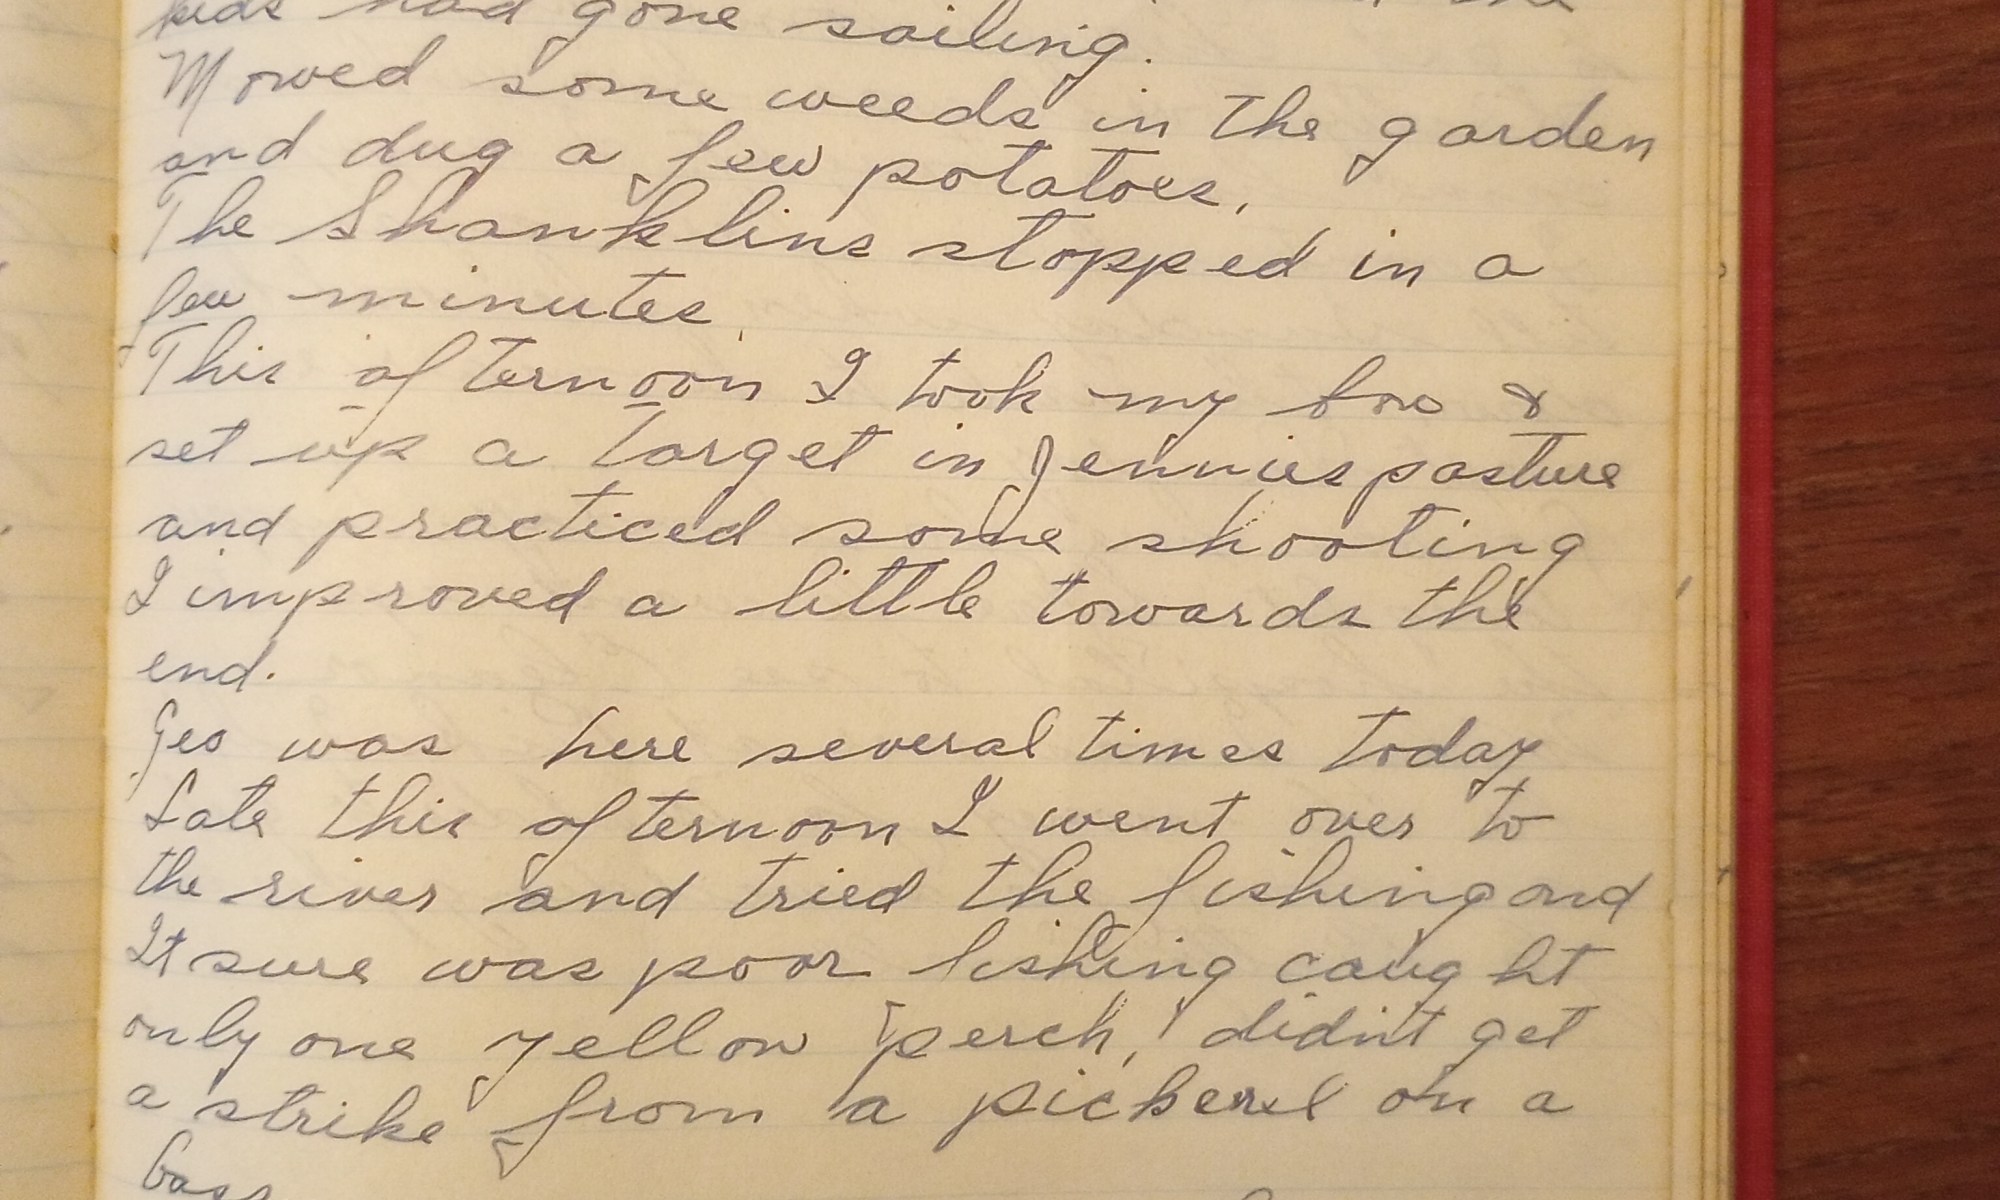 kids had gone sailing.
Mowed some weeds in the garden
and dug a few potatoes.
The Shanklins stopped in a
few minutes.
This afternoon I took my bow &
set up a target in Jennies pasture
and practiced some shooting
I improved a little towards the
end.
Geo was here several times today
Late this afternoon I went over to
the river and tried the fishing and
It sure was poor fishing caught
only one yellow perch, didn't get
a strike from a pickerel on a
bass